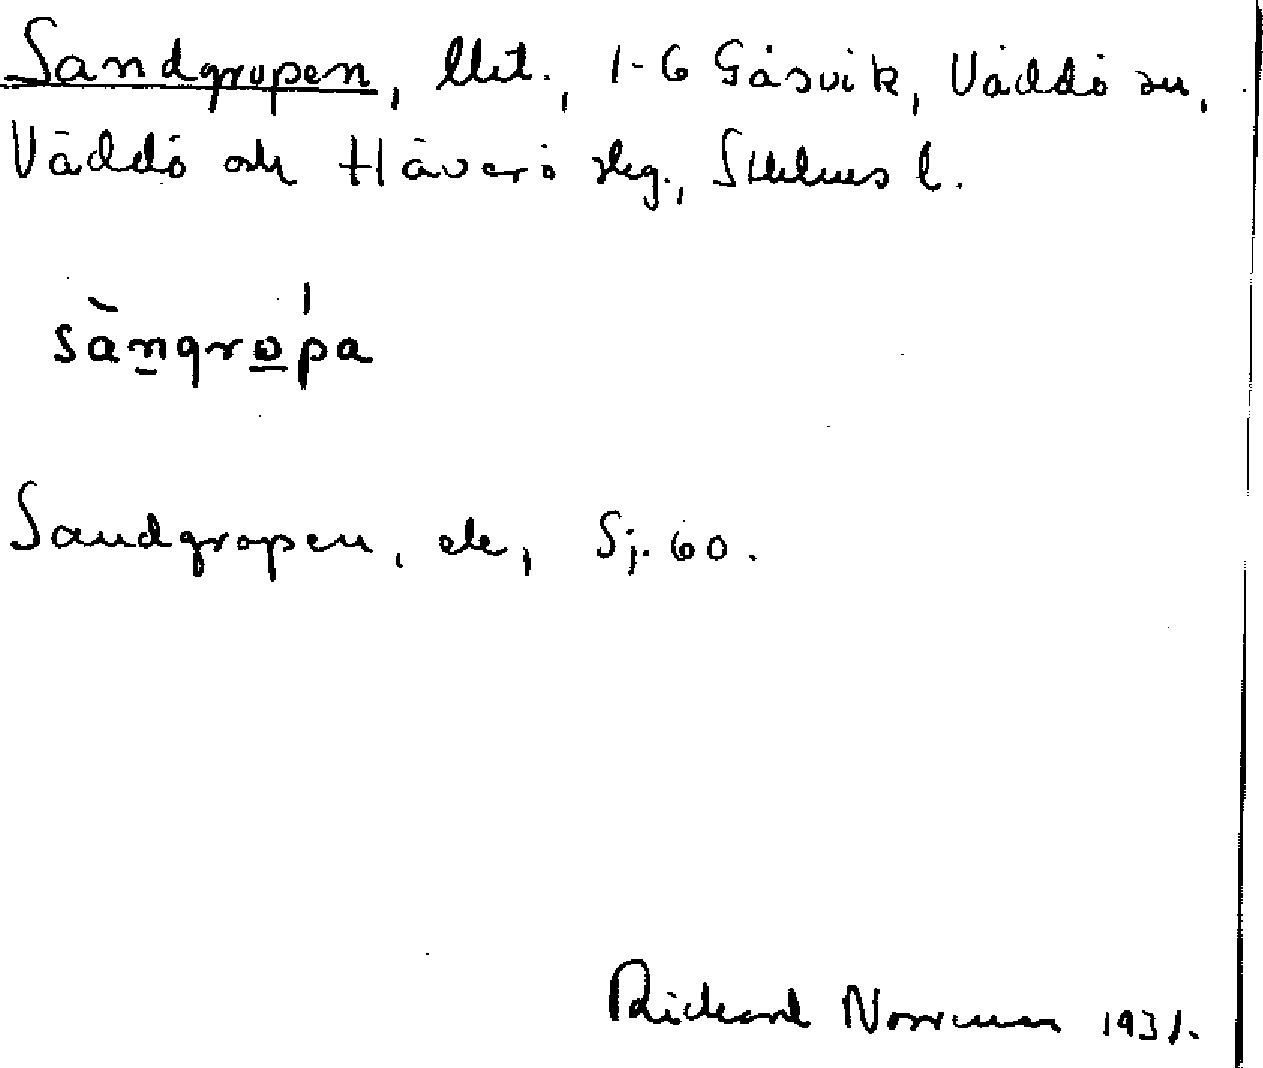 Sandgropen, llit., 1-6 Gåsvik, Väddö sn,
Väddö och Häverö skg., Sthlms l.
sàngrópa
Sandgropen, ele, Sj. 60.
Rickard Norrman 1931.